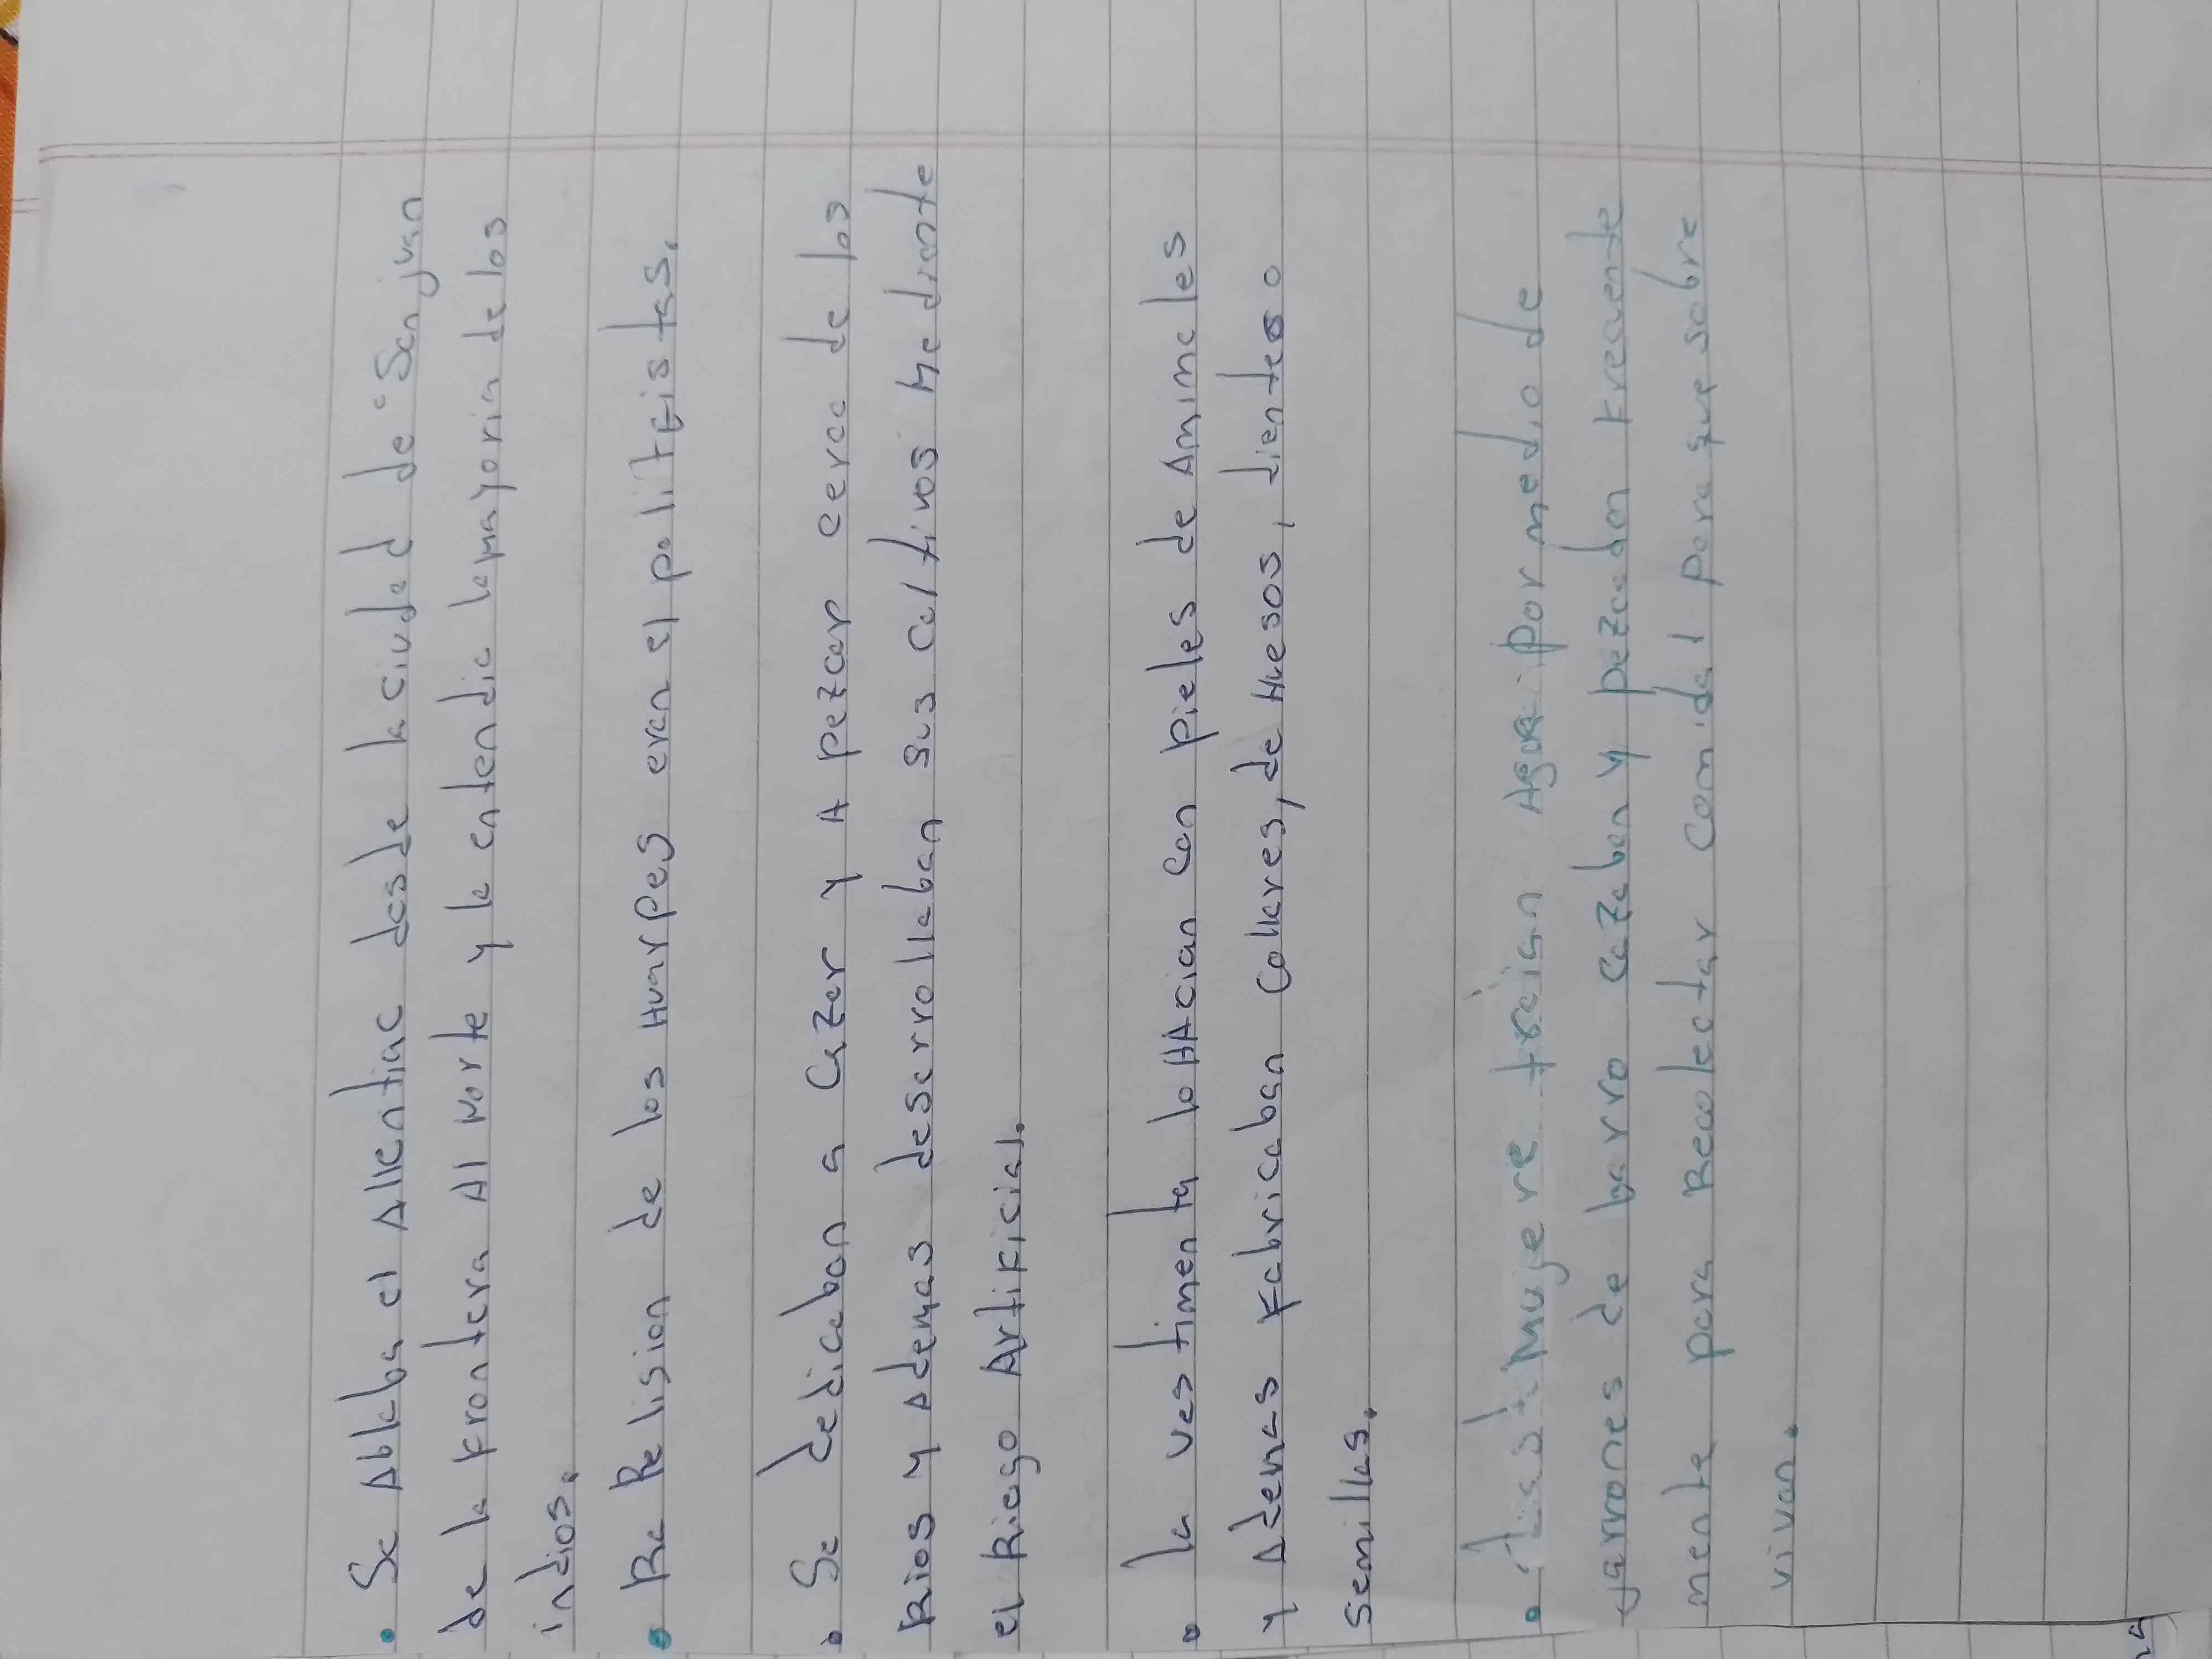 • Se Ablaba el Allentiac desde la ciudad de "San juan
de la Frontera Al Norte y la entendia la mayoria de los
indios.
• Ra Relision de los Huarpes eran el politeistas.
• Se dedicaban a Cazar y A pezcar cerca de los
Rios y Ademas desarrollaban sus Caltivos Mediante
el Riego Artificial.
• la vestimenta lo HAcian con pieles de Animales
y Ademas Fabricaban Collares, de Huesos, dientes o
semillas.
• Las Mujere traian Agua por medio de
jarrones de barro Cazaban y pezcadan Frecuente
mente para Recolectar Comida y para que sobre
vivan.